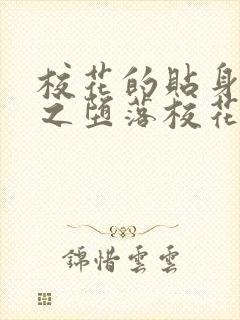 校花的貼身
之墮落校花
錦惜雲雲